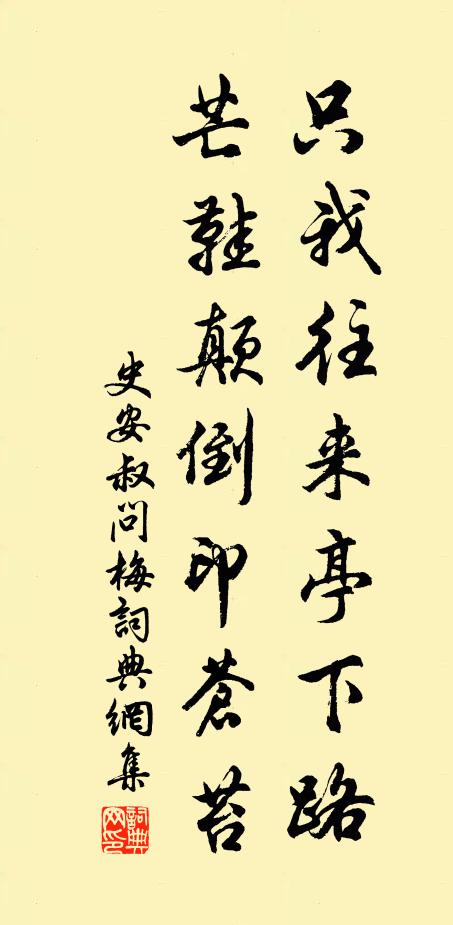 只我往来亭下路
芒鞋颠倒印苍苔
史安叔问梅詞典網集
詞典
网印